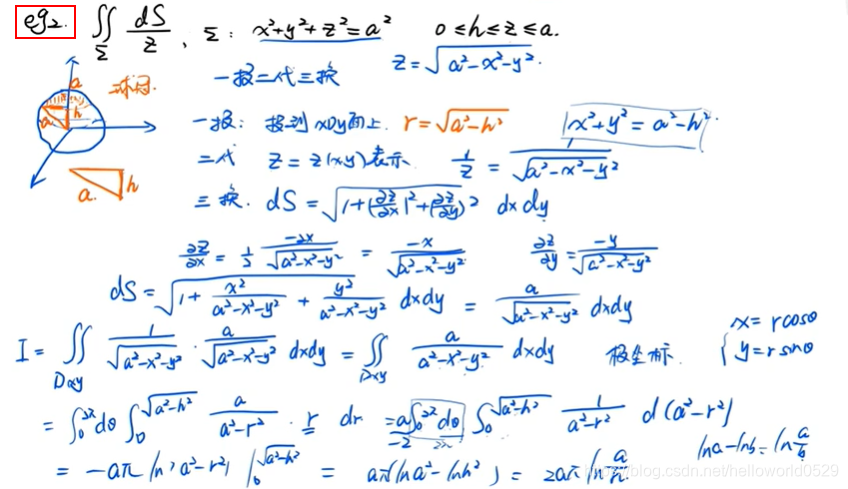 eg2. ∬_Σ dS/z , Σ: x²+y²+z²=a² 0≤h≤z≤a.
z=√(a²-x²-y²).
一投二代三换
a
球冠.
a h
a. h
一投: 投到xOy面上. r=√(a²-h²) x²+y²=a²-h².
二代 z=z(xy)表示. 1/z = 1/√(a²-x²-y²)
三换. dS=√(1+(∂z/∂x)²+(∂z/∂y)²) dxdy
∂z/∂x = 1/2 (-2x)/√(a²-x²-y²) = -x/√(a²-x²-y²) ∂z/∂y = -y/√(a²-x²-y²)
dS=√(1+ x²/(a²-x²-y²) + y²/(a²-x²-y²)) dxdy = a/√(a²-x²-y²) dxdy
I= ∬_Dxy 1/√(a²-x²-y²) · a/√(a²-x²-y²) dxdy = ∬_Dxy a/(a²-x²-y²) dxdy 极坐标. { x=rcosθ
y=rsinθ
= ∫₀^2π dθ ∫₀^√(a²-h²) a/(a²-r²) · r dr = a/-2 ∫₀^2π dθ ∫₀^√(a²-h²) 1/(a²-r²) d(a²-r²)
2π
lna-lnb=ln a/b
= -aπ ln(a²-r²) |₀^√(a²-h²) = aπ(lna²-lnh²) = 2aπ ln a/h.
https://blog.csdn.net/helloworld0529